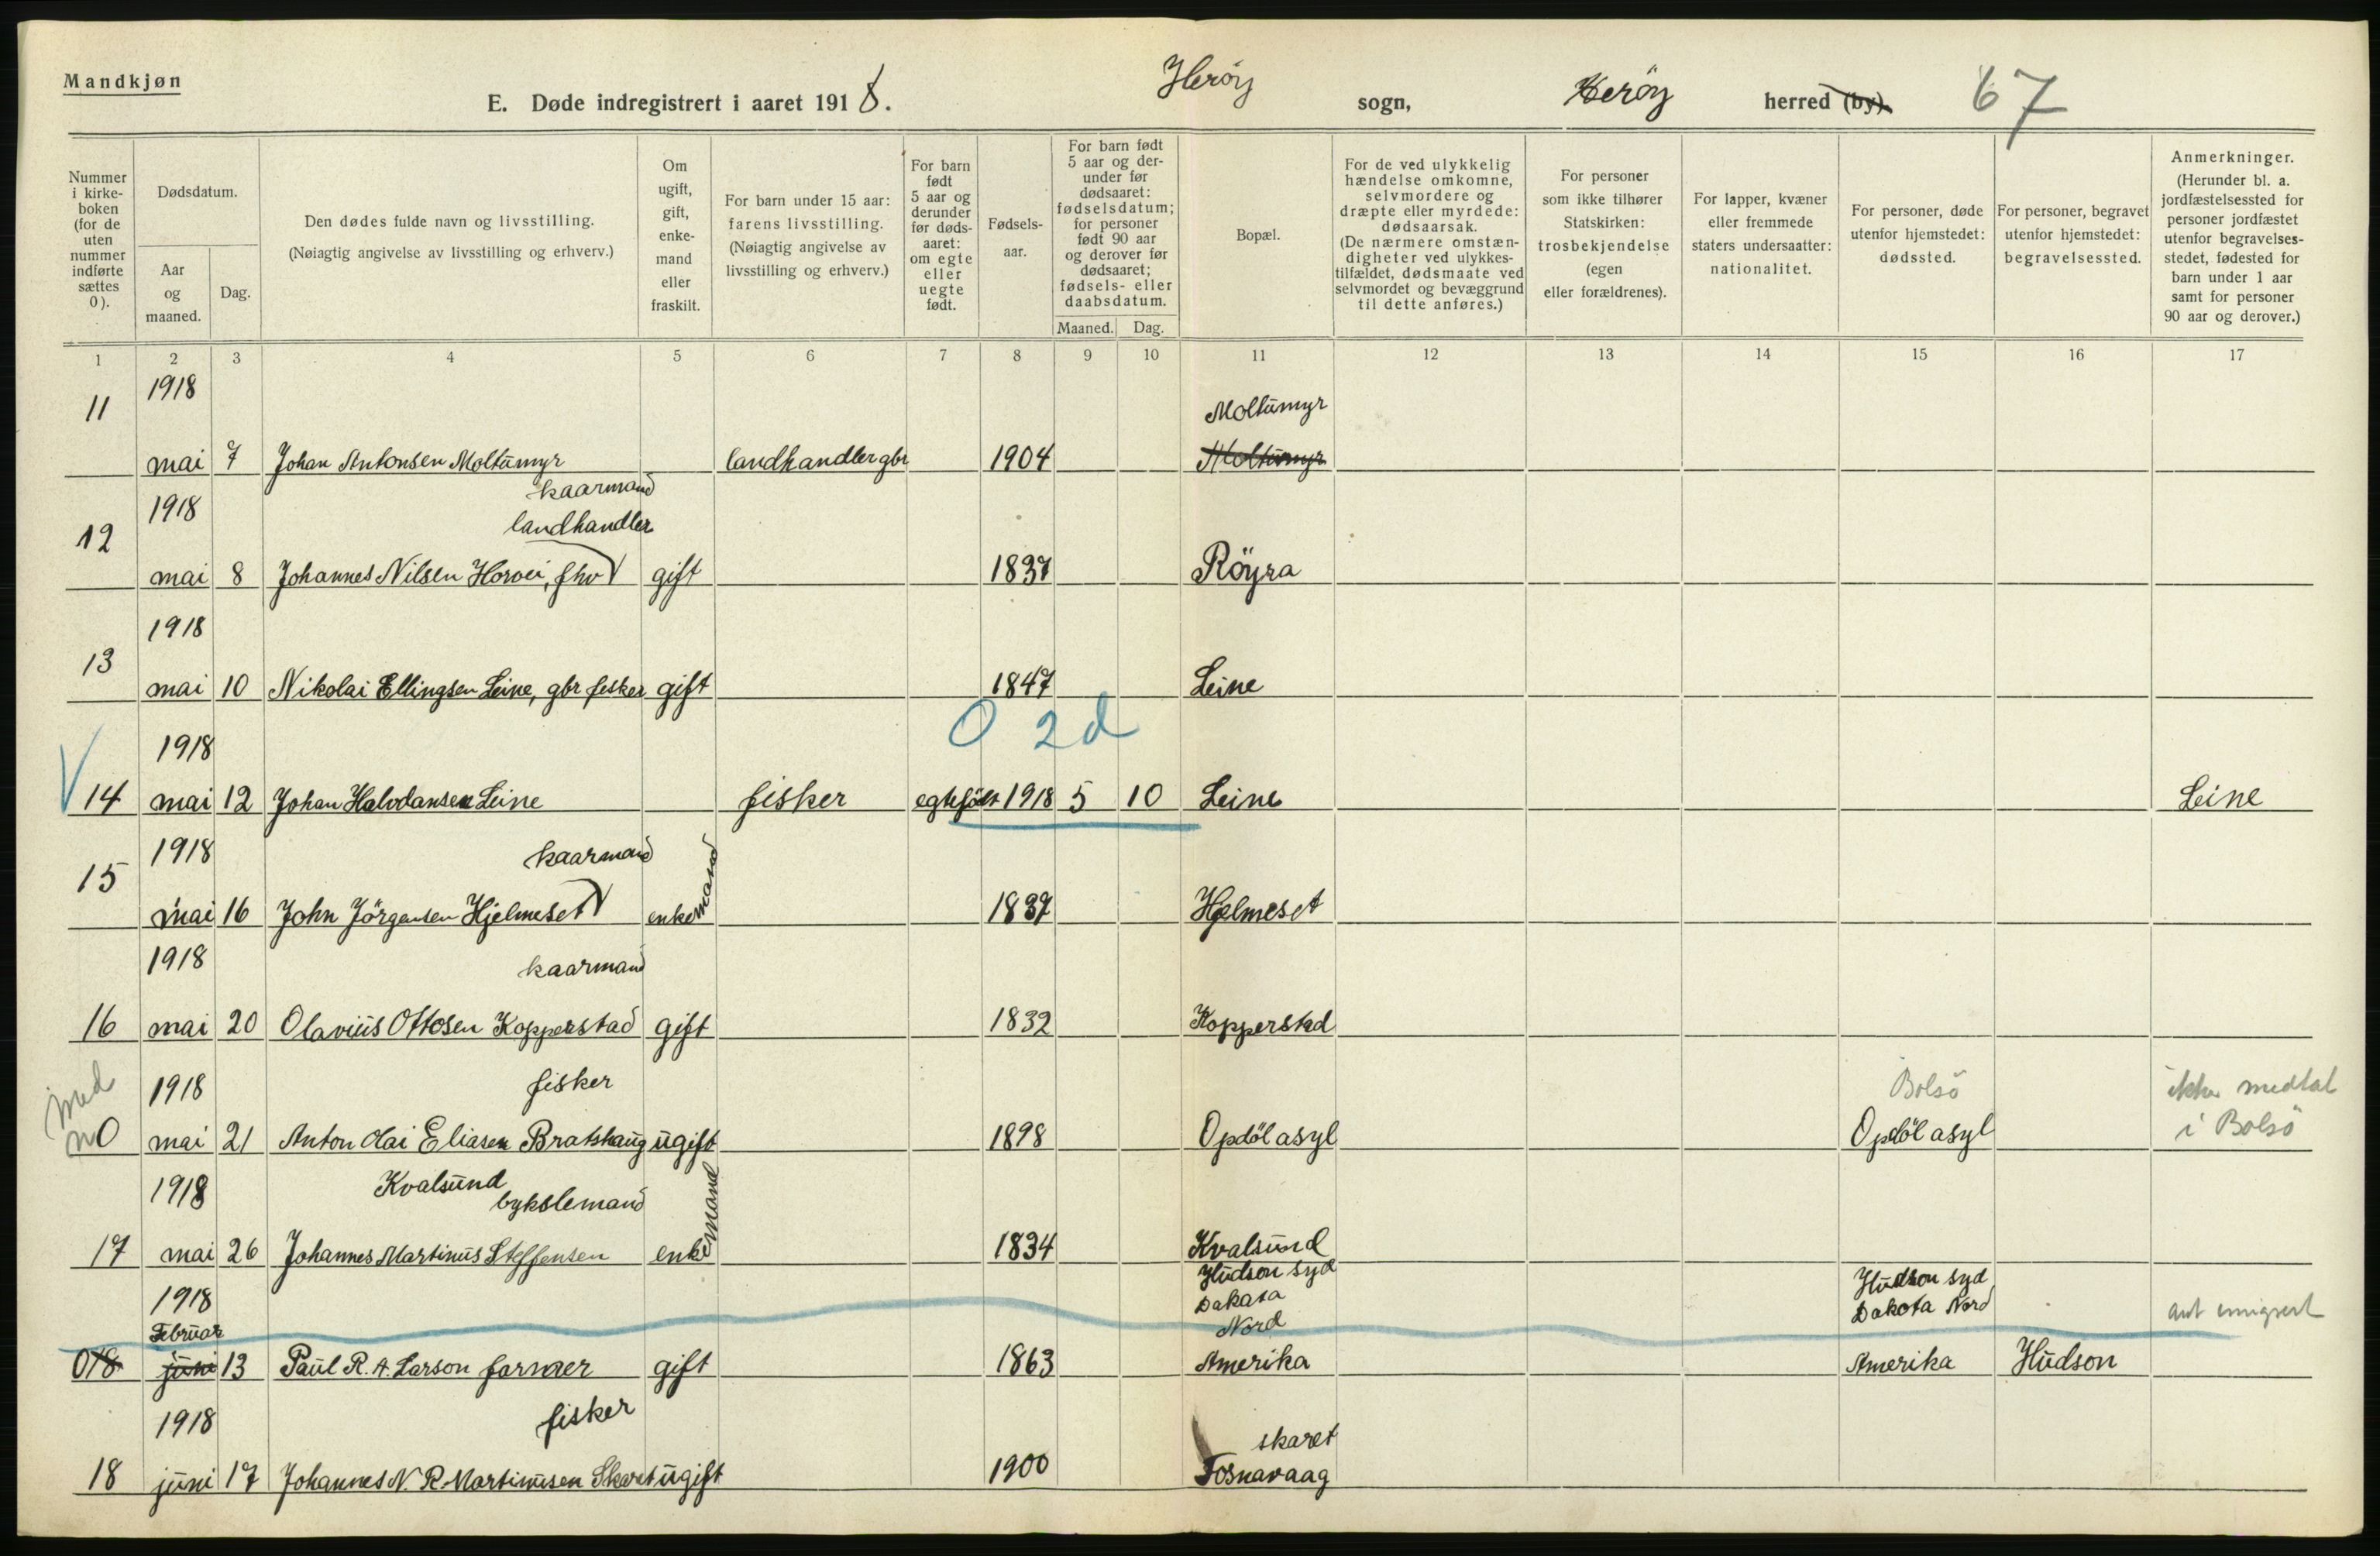 Mandkjøn
E. Døde indregistrert i aaret 1918.
Herøy sogn, Herøy herred (by). 67
Nummer i kirke- boken (for de uten nummer indførte sættes 0).
Dødsdatum.
Aar og maaned.
Dag.
Den dødes fulde navn og livsstilling.
(Nøiagtig angivelse av livsstilling og erhverv.)
Om ugift, gift, enke- mand eller fraskilt.
For barn under 15 aar: farens livsstilling. (Nøiagtig angivelse av livsstilling og erhverv.)
For barn født 5 aar og derunder før døds- aaret: om egte eller uegte født.
Fødsels- aar.
For barn født 5 aar og der- under før dødsaaret: fødselsdatum; for personer født 90 aar og derover før dødsaaret; fødsels- eller daabsdatum.
Maaned. Dag.
Bopæl.
For de ved ulykkelig hændelse omkomne, selvmordere og dræpte eller myrdede: dødsaarsak. (De nærmere omstæn- digheter ved ulykkes- tilfældet, dødsmaate ved selvmordet og bevæggrund til dette anføres.)
For personer som ikke tilhører Statskirken: trosbekjendelse (egen eller forældrenes).
For lapper, kvæner eller fremmede staters undersaatter: nationalitet.
For personer, døde utenfor hjemstedet: dødssted.
For personer, begravet utenfor hjemstedet: begravelsessted.
Anmerkninger. (Herunder bl. a. jordfæstelsessted for personer jordfæstet utenfor begravelses- stedet, fødested for barn under 1 aar samt for personer 90 aar og derover.)
1 2 3 4 5 6 7 8 9 10 11 12 13 14 15 16 17
1918
11 Moltumyr
mai 7 Johan Antonsen Moltumyr landhandler gbr 1904 Moltumyr
kaarmand
1918 landhandler
12
mai 8 Johannes Nilsen Horvei, fhv gift 1837 Röyra
1918
13
mai 10 Nikolai Ellingsen Leine, gbr fisker gift 1847 Leine
O 2d
1918
14 mai 12 Johan Halvdansen Leine fisker egtefödt 1918 5 10 Leine Leine
1918 kaarmand
15
mai 16 John Jörgensen Hjelmeset enkemand 1837 Hjelmeset
1918 kaarmand
16 mai 20 Olavius Ottosen Kopperstad gift 1832 Kopperstad
med 1918 fisker Bolsö ikke medtat
n0 mai 21 Anton Olai Eliasen Bratshaug ugift 1898 Opdöl asyl Opdöl asyl i Bolsö
1918 Kvalsund
bykslemand
17 mai 26 Johannes Martinus Steffensen enkemand 1834 Kvalsund
1918 Hudson Syd Dakata Nord Hudson Syd Dakota Nord
Februar
018 juni 13 Paul R. A. Larson farmer gift 1863 Amerika Amerika Hudson
1918 fisker
skaret
18 juni 17 Johannes N. R. Martinusen Skaret ugift 1900 Fosnavaag